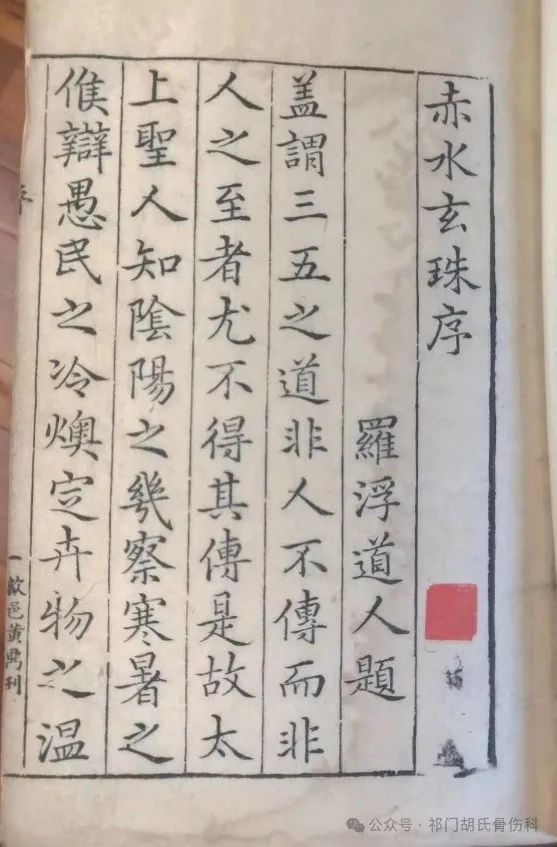 赤水玄珠序
羅浮道人題
盖謂三五之道非人不傳而非
人之至者尤不得其傳是故太
上聖人知陰陽之幾察寒暑之
候辯愚民之冷燠定卉物之温
序
一 歙邑黄鼎刊
公众号·祁门胡氏骨伤科